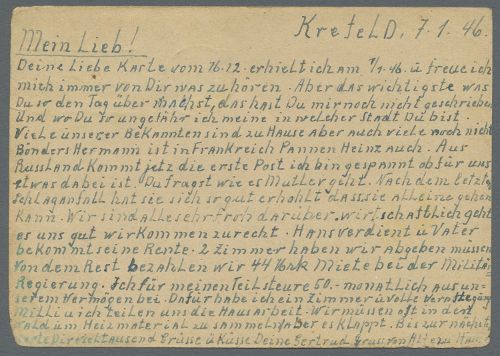 Krefeld, 7.1.46.
Mein Lieb!
Deine liebe Karte vom 16.12. erhielt ich am 7/1.46. u freue ich
mich immer von Dir was zu hören. Aber das wichtigste was
Du so den Tag über machst, das hast Du mir noch nicht geschrieben
Und wo Du so ungefähr ich meine in welcher Stadt Du bist.
Viele unserer Bekannten sind zu Hause aber auch viele noch nicht
Bönders Hermann ist in Frankreich Pannen Heinz auch. Aus
Russland kommt jetz die erste Post ich bin gespannt ob für uns
etwas dabei ist. Du fragst wie es Mutter geht. Nach dem letzten
Schlaganfall hat sie sich so gut erhohlt dass sie alleine gehen
kann. Wir sind alle sehr froh darüber. wirtschaftlich geht
es uns gut wir kommen zurecht. Hans verdient u Vater
bekommt seine Rente. 2 Zimmer haben wir abgeben müssen
von dem Rest bezahlen wir 44 Mrk Miete bei der Militär
Regierung. Ich für meinen Teil steure 50.- monatlich aus un-
serem Vermögen bei. Dafür habe ich ein Zimmer u volle
Milli u ich teilen uns die Hausarbeit. Wir müssen oft in den
Wald um Heizmaterial zu sammeln aber es klappt. Bis zur nächst.
Karte Dir viel tausend Grüsse u Küsse Deine Gertrud. Gruss von All. zu Haus